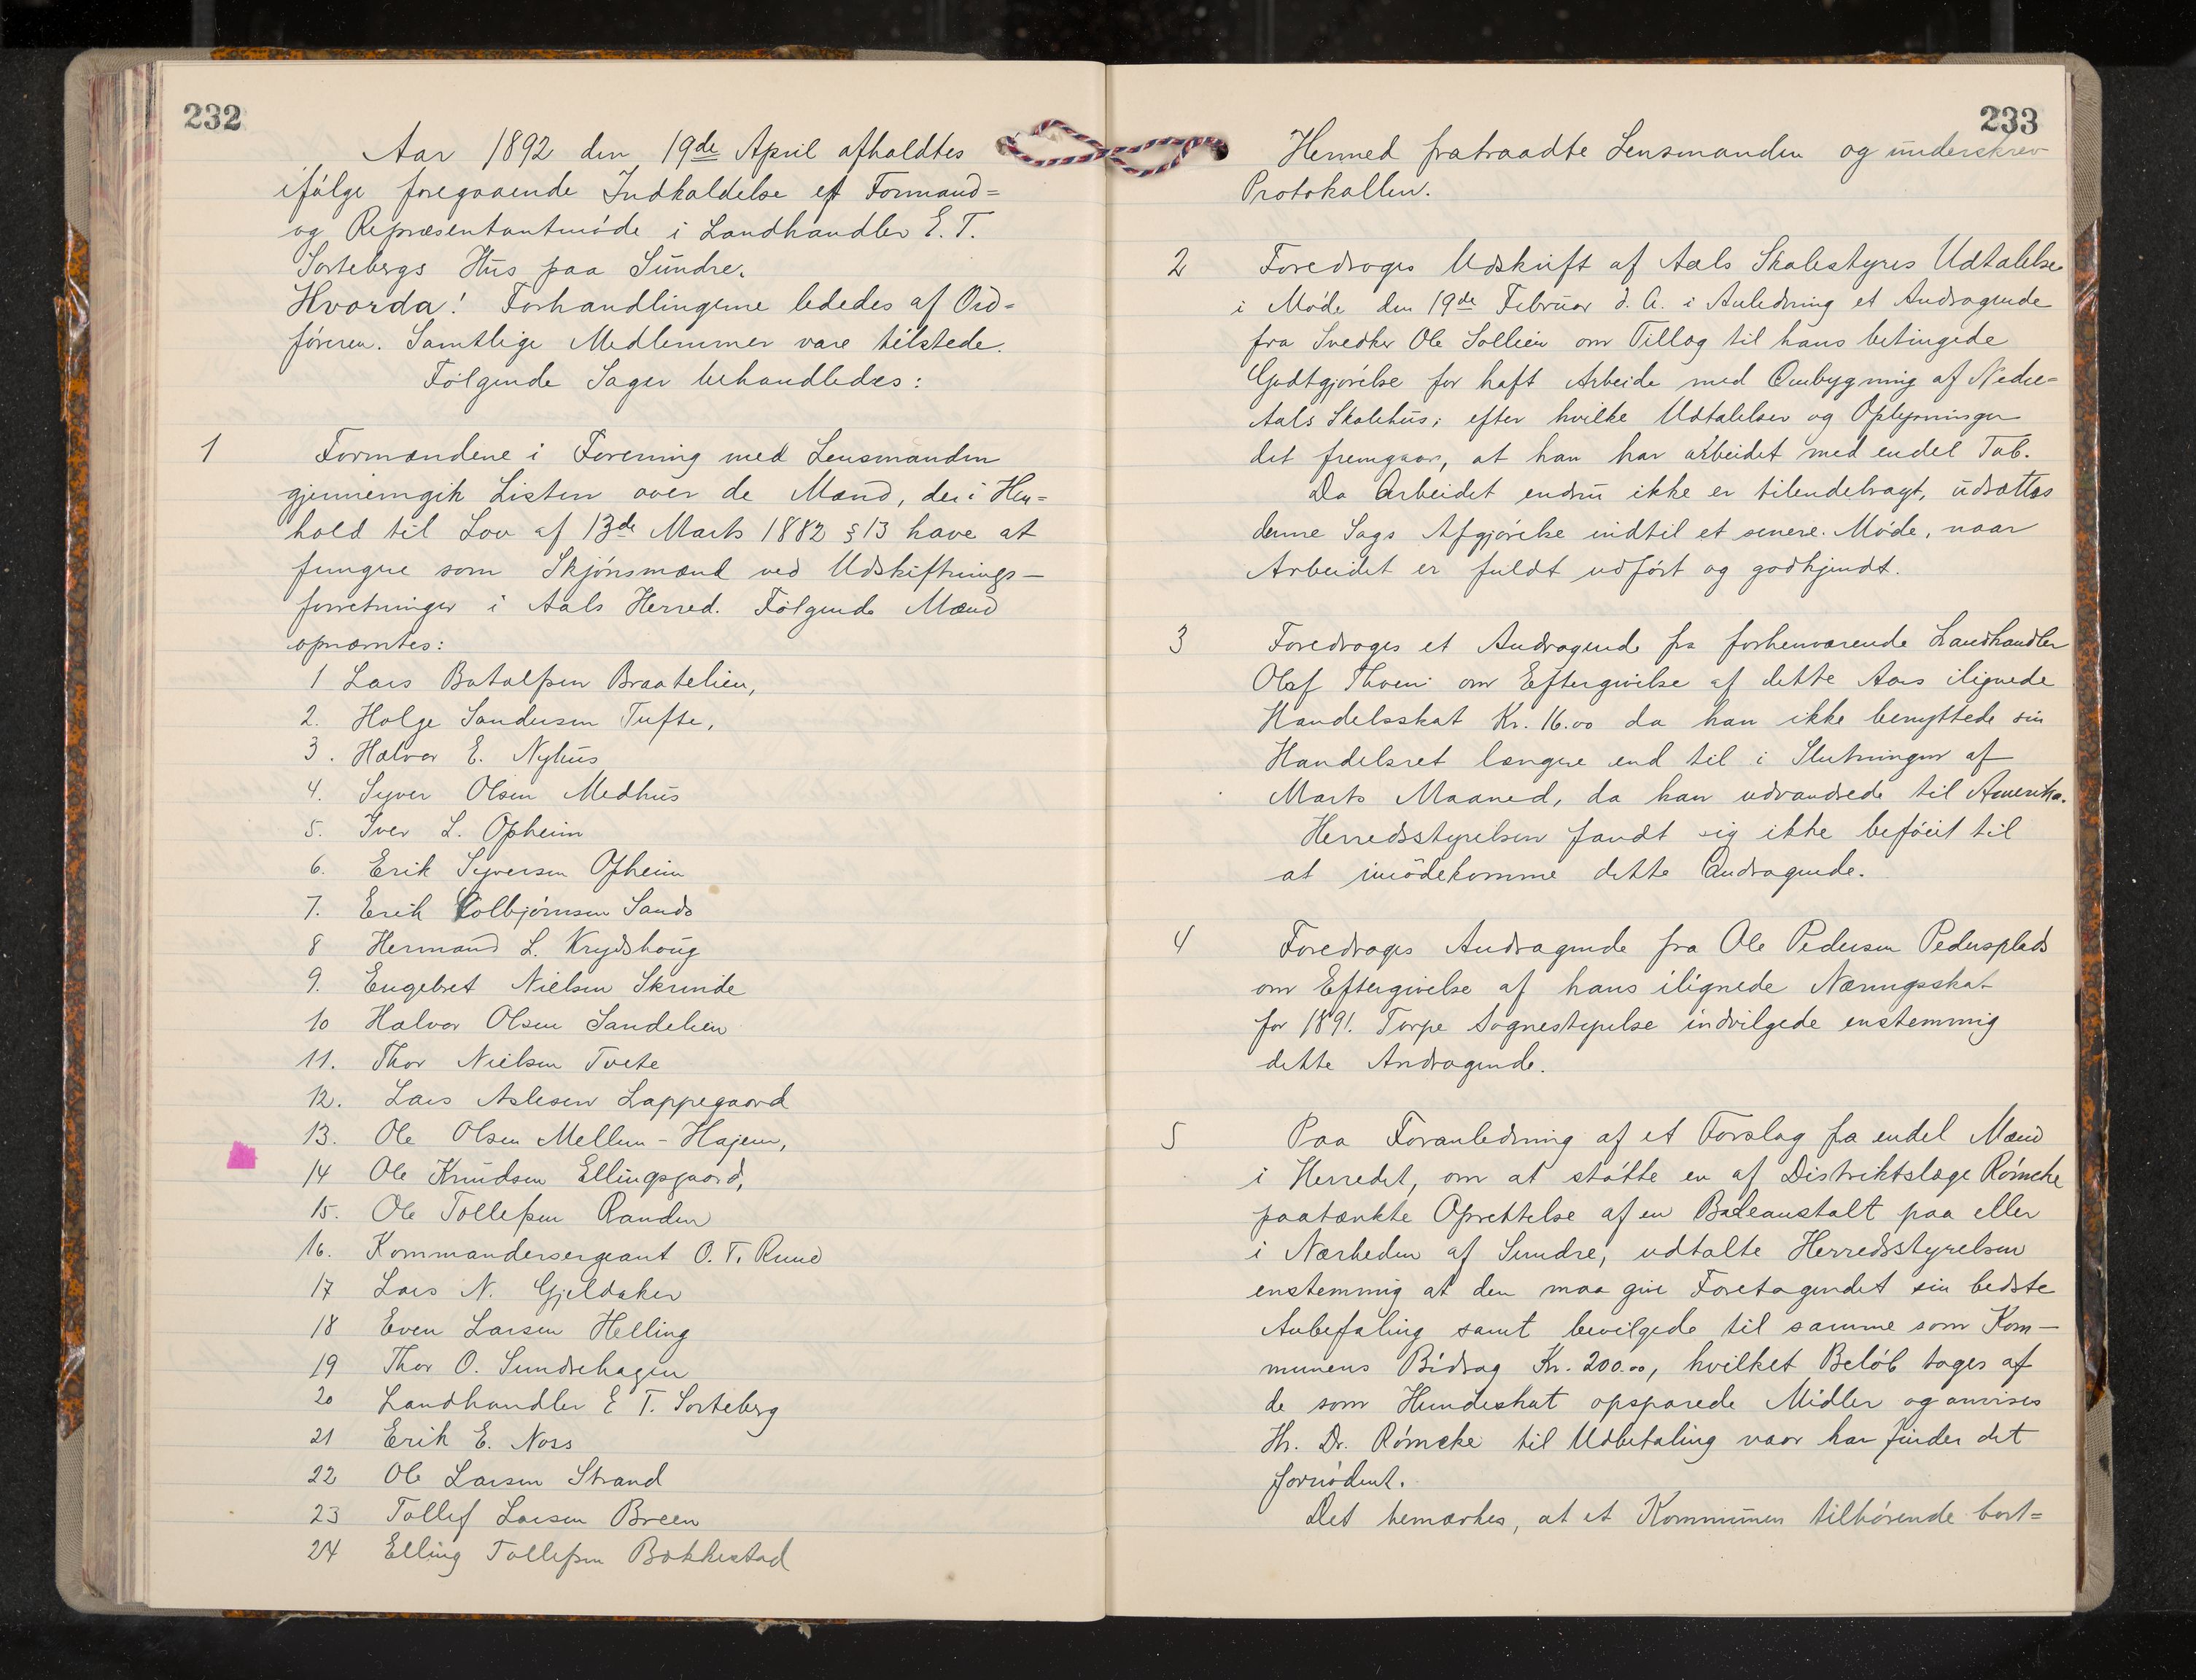 232
Aar 1892 den 19de April afholdtes
ifølge foregaaende Indkaldelse et Formand=
og Repræsentantmøde i Landhandler E. T.
Sortebergs Hus paa Sundre.
Hvorda! Forhandlingerne lededes af Ord=
føreren. Samtlige Medlemmer vare tilstede.
Følgende Sager behandledes:
1 Formændene i Forening med Lensmanden
gjennemgik Listen over de Mænd, der i Hen=
hold til Lov af 13de Marts 1882 § 13 have at
fungere som Skjønsmænd ved Udskiftnings-
forretninger i Aals Herred. Følgende Mænd
opnævntes:
1 Lars Botolfsen Braatelien,
2. Holge Sandersen Tufte,
3. Halvor E. Nyhus
4. Syver Olsen Medhus
5. Iver L. Opheim
6. Erik Syversen Opheim
7. Erik Colbjørnsen Sando
8 Hermand L. Krydshoug
9. Engebret Nielsen Skrinde
10 Halvor Olsen Sandelien
11. Thor Nielsen Tveto
12. Lars Aslesen Lappegaard
13. Ole Olsen Mellum-Hajem,
14 Ole Knudsen Ellingsgaard,
15. Ole Tollefsen Randen
16. Kommandersergeant O. T. Ruud
17 Lars N. Gjeldaker
18 Even Larsen Helling
19 Thor O. Sundrehagen
20 Landhandler E T. Sorteberg
21 Erik E. Noss
22 Ole Larsen Strand
23 Tollef Larsen Breen
24 Elling Tollefsen Bakkestad
233
Hermed fratraadte Lensmanden og underskrev
Protokollen.
2 Foredroges Udskrift af Aals Skolestyres Udtalelse
i Møde den 19de Februar d. A. i Anledning et Andragende
fra Snedker Ole Sollien om Tillæg til hans betingede
Godtgjørelse for haft Arbeide med Ombygning af Nedre=
Aals Skolehus; efter hvilke Udtalelser og Oplysninger
det fremgaar, at han har arbeidet med endel Tab.
Da Arbeidet endnu ikke er tilendebragt, udsættes
denne Sags Afgjørelse indtil et senere Møde, naar
Arbeidet er fuldt udført og godkjendt.
3 Foredroges et Andragende fra forhenværende Landhandler
Olaf Thoen om Eftergivelse af dette Aars ilignede
Handelsskat Kr. 16.00 da han ikke benyttede sin
Handelsret længere end til i Slutningen af
Marts Maaned, da han udvandrede til Amerika.
Herredsstyrelsen fandt sig ikke beføiet til
at imødekomme dette Andragende.
4 Foredroges Andragende fra Ole Pedersen Pedersplads
om Eftergivelse af hans ilignede Næringsskat
for 1891. Torpe Sognestyrelse indvilgede enstemmig
dette Andragende.
5 Paa Foranledning af et Forslag fra endel Mænd
i Herredet, om at støtte en af Distriktslæge Rømcke
paatænkte Oprettelse af en Badeanstalt paa eller
i Nærheden af Sundre, udtalte Herredsstyrelsen
enstemmig at den maa give Foretagendet sin bedste
Anbefaling samt bevilgede til samme som Kom-
munens Bidrag Kr. 200.00, hvilket Beløb tages af
de som Hundeskat opsparede Midler og anvises
Hr. Dr. Rømcke til Udbetaling naar han finder det
fornødent.
Det bemærkes, at et Kommunen tilhørende bort=